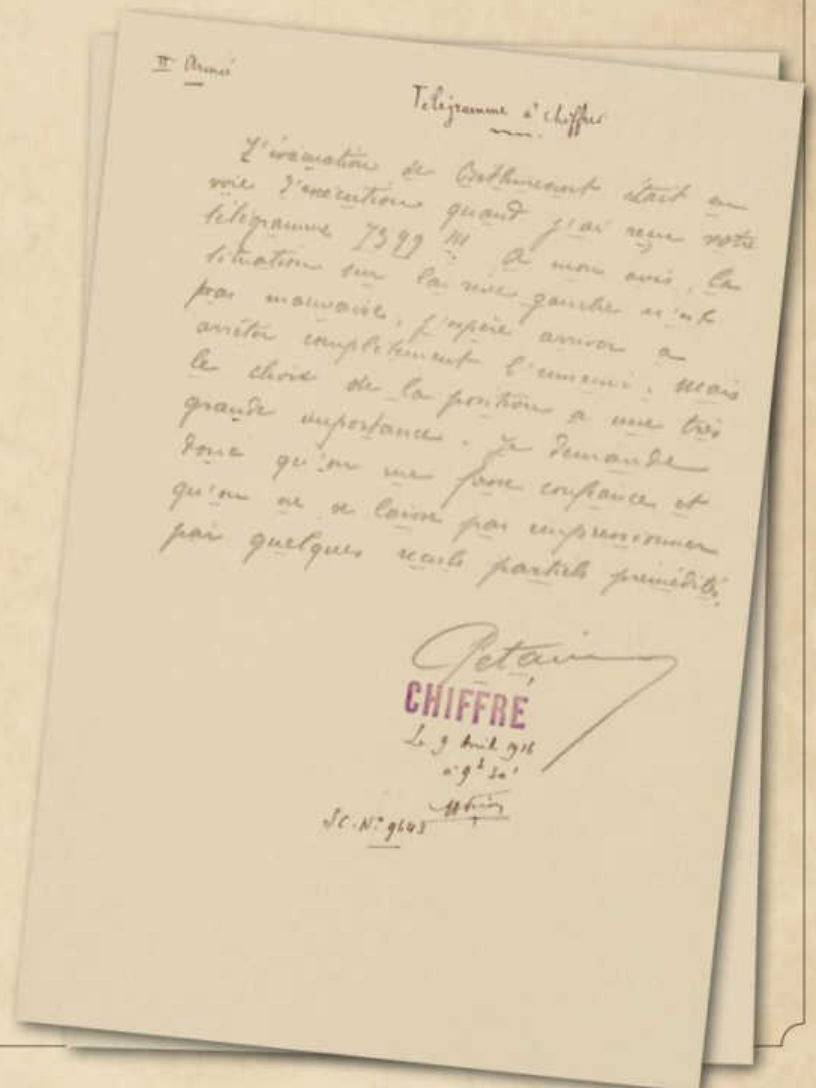 II Armée
Télégramme à chiffrer
L'évacuation de Béthincourt était en
voie d'exécution quand j'ai reçu votre
télégramme 7399 M. A mon avis, la
situation sur la rive gauche n'est
pas mauvaise, j'espère arriver à
arrêter complètement l'ennemi. Mais
le choix de la position a une très
grande importance. Je demande
donc qu'on me fasse confiance et
qu'on ne se laisse pas impressionner
par quelques reculs partiels prémédités.
Petain
CHIFFRÉ
Le 9 Avril 1916
à 9h 30'
SC. N° 9643